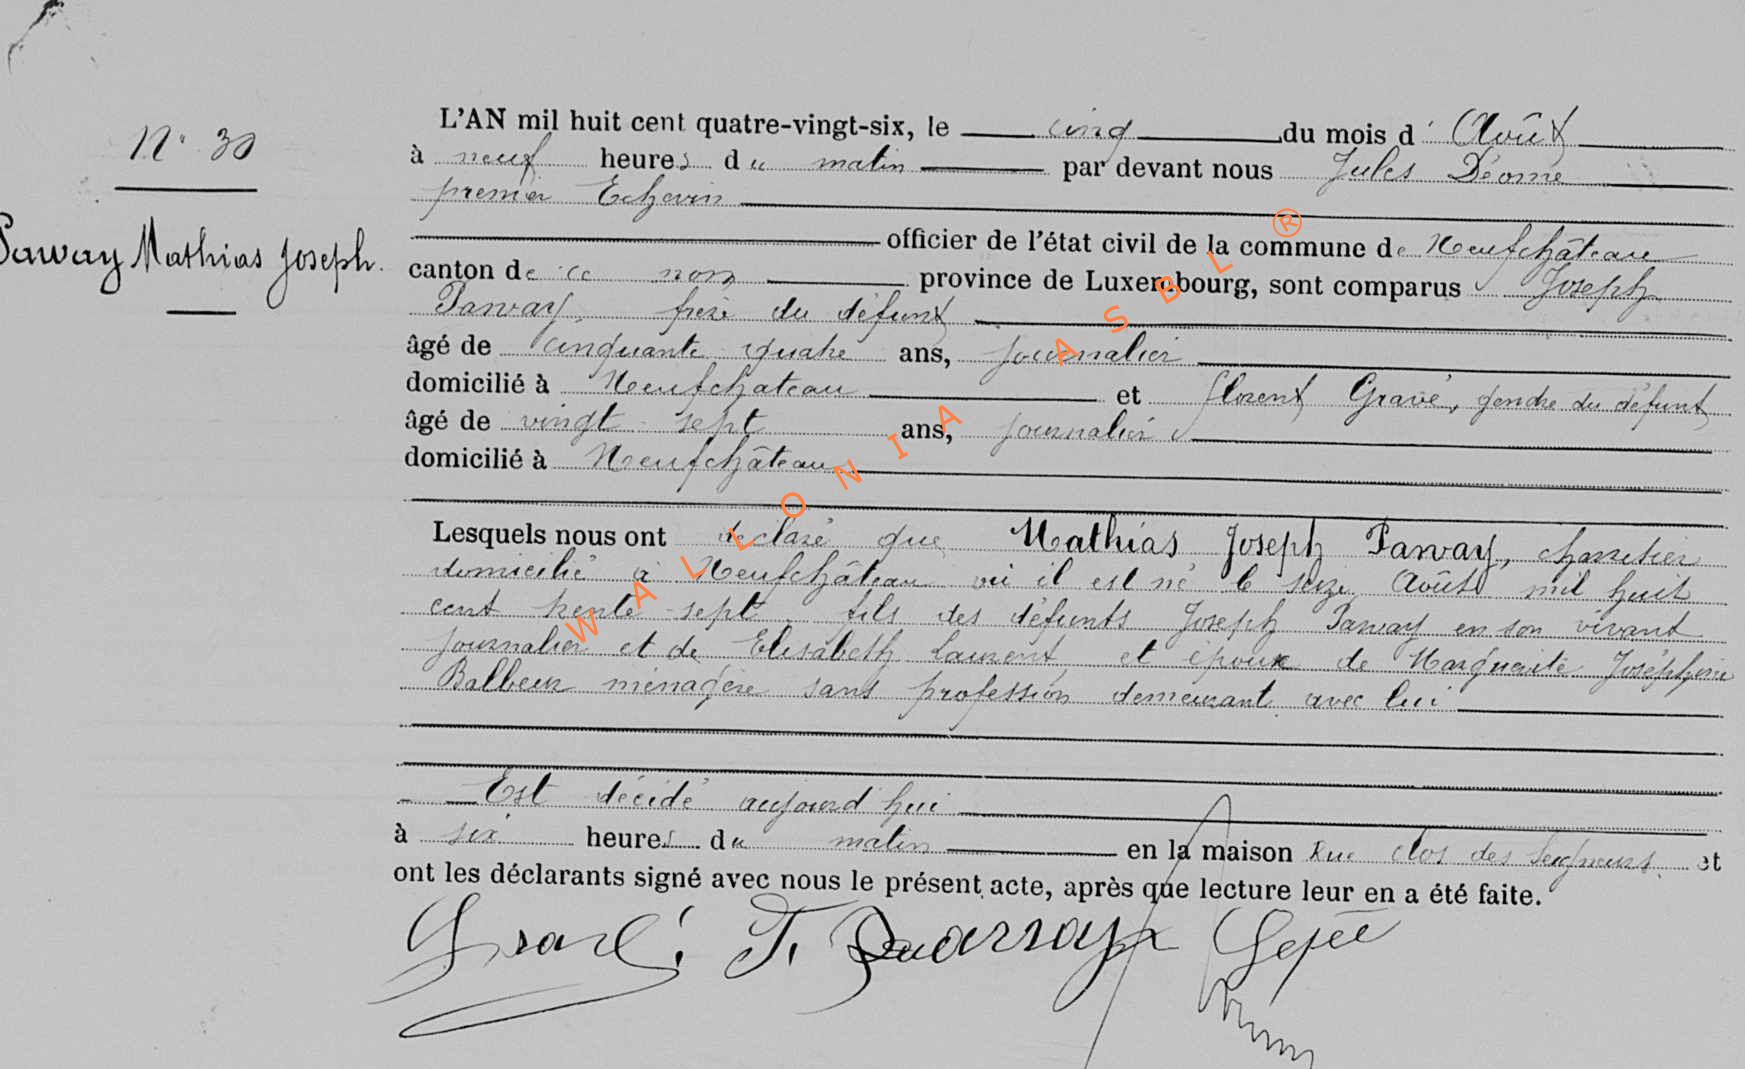 N° 30
Parvay Mathias Joseph.
L'AN mil huit cent quatre-vingt-six, le cinq du mois d'Août
à neuf heures du matin par devant nous Jules Déome
premier Echevin
officier de l'état civil de la commune de Neufchâteau
canton de ce nom province de Luxembourg, sont comparus Joseph
Parvay, frère du défunt
âgé de cinquante quatre ans, journalier
domicilié à Neufchateau et florent Gravé, gendre du défunt
âgé de vingt-sept ans, journalier
domicilié à Neufchâteau
Lesquels nous ont déclaré que Mathias Joseph Parvay, charretier
domicilié à Neufchâteau où il est né le seize Août mil huit
cent trente-sept, fils des défunts Joseph Parvay en son vivant
journalier et de Elisabeth Laurent, et époux de Marguerite Joséphine
Balbeur ménagère sans profession demeurant avec lui
Est décédé aujourd'hui
à six heures du matin en la maison Rue Clos des Seigneurs et
ont les déclarants signé avec nous le présent acte, après que lecture leur en a été faite.
Gravé F.
WALLONIA ASBL ®